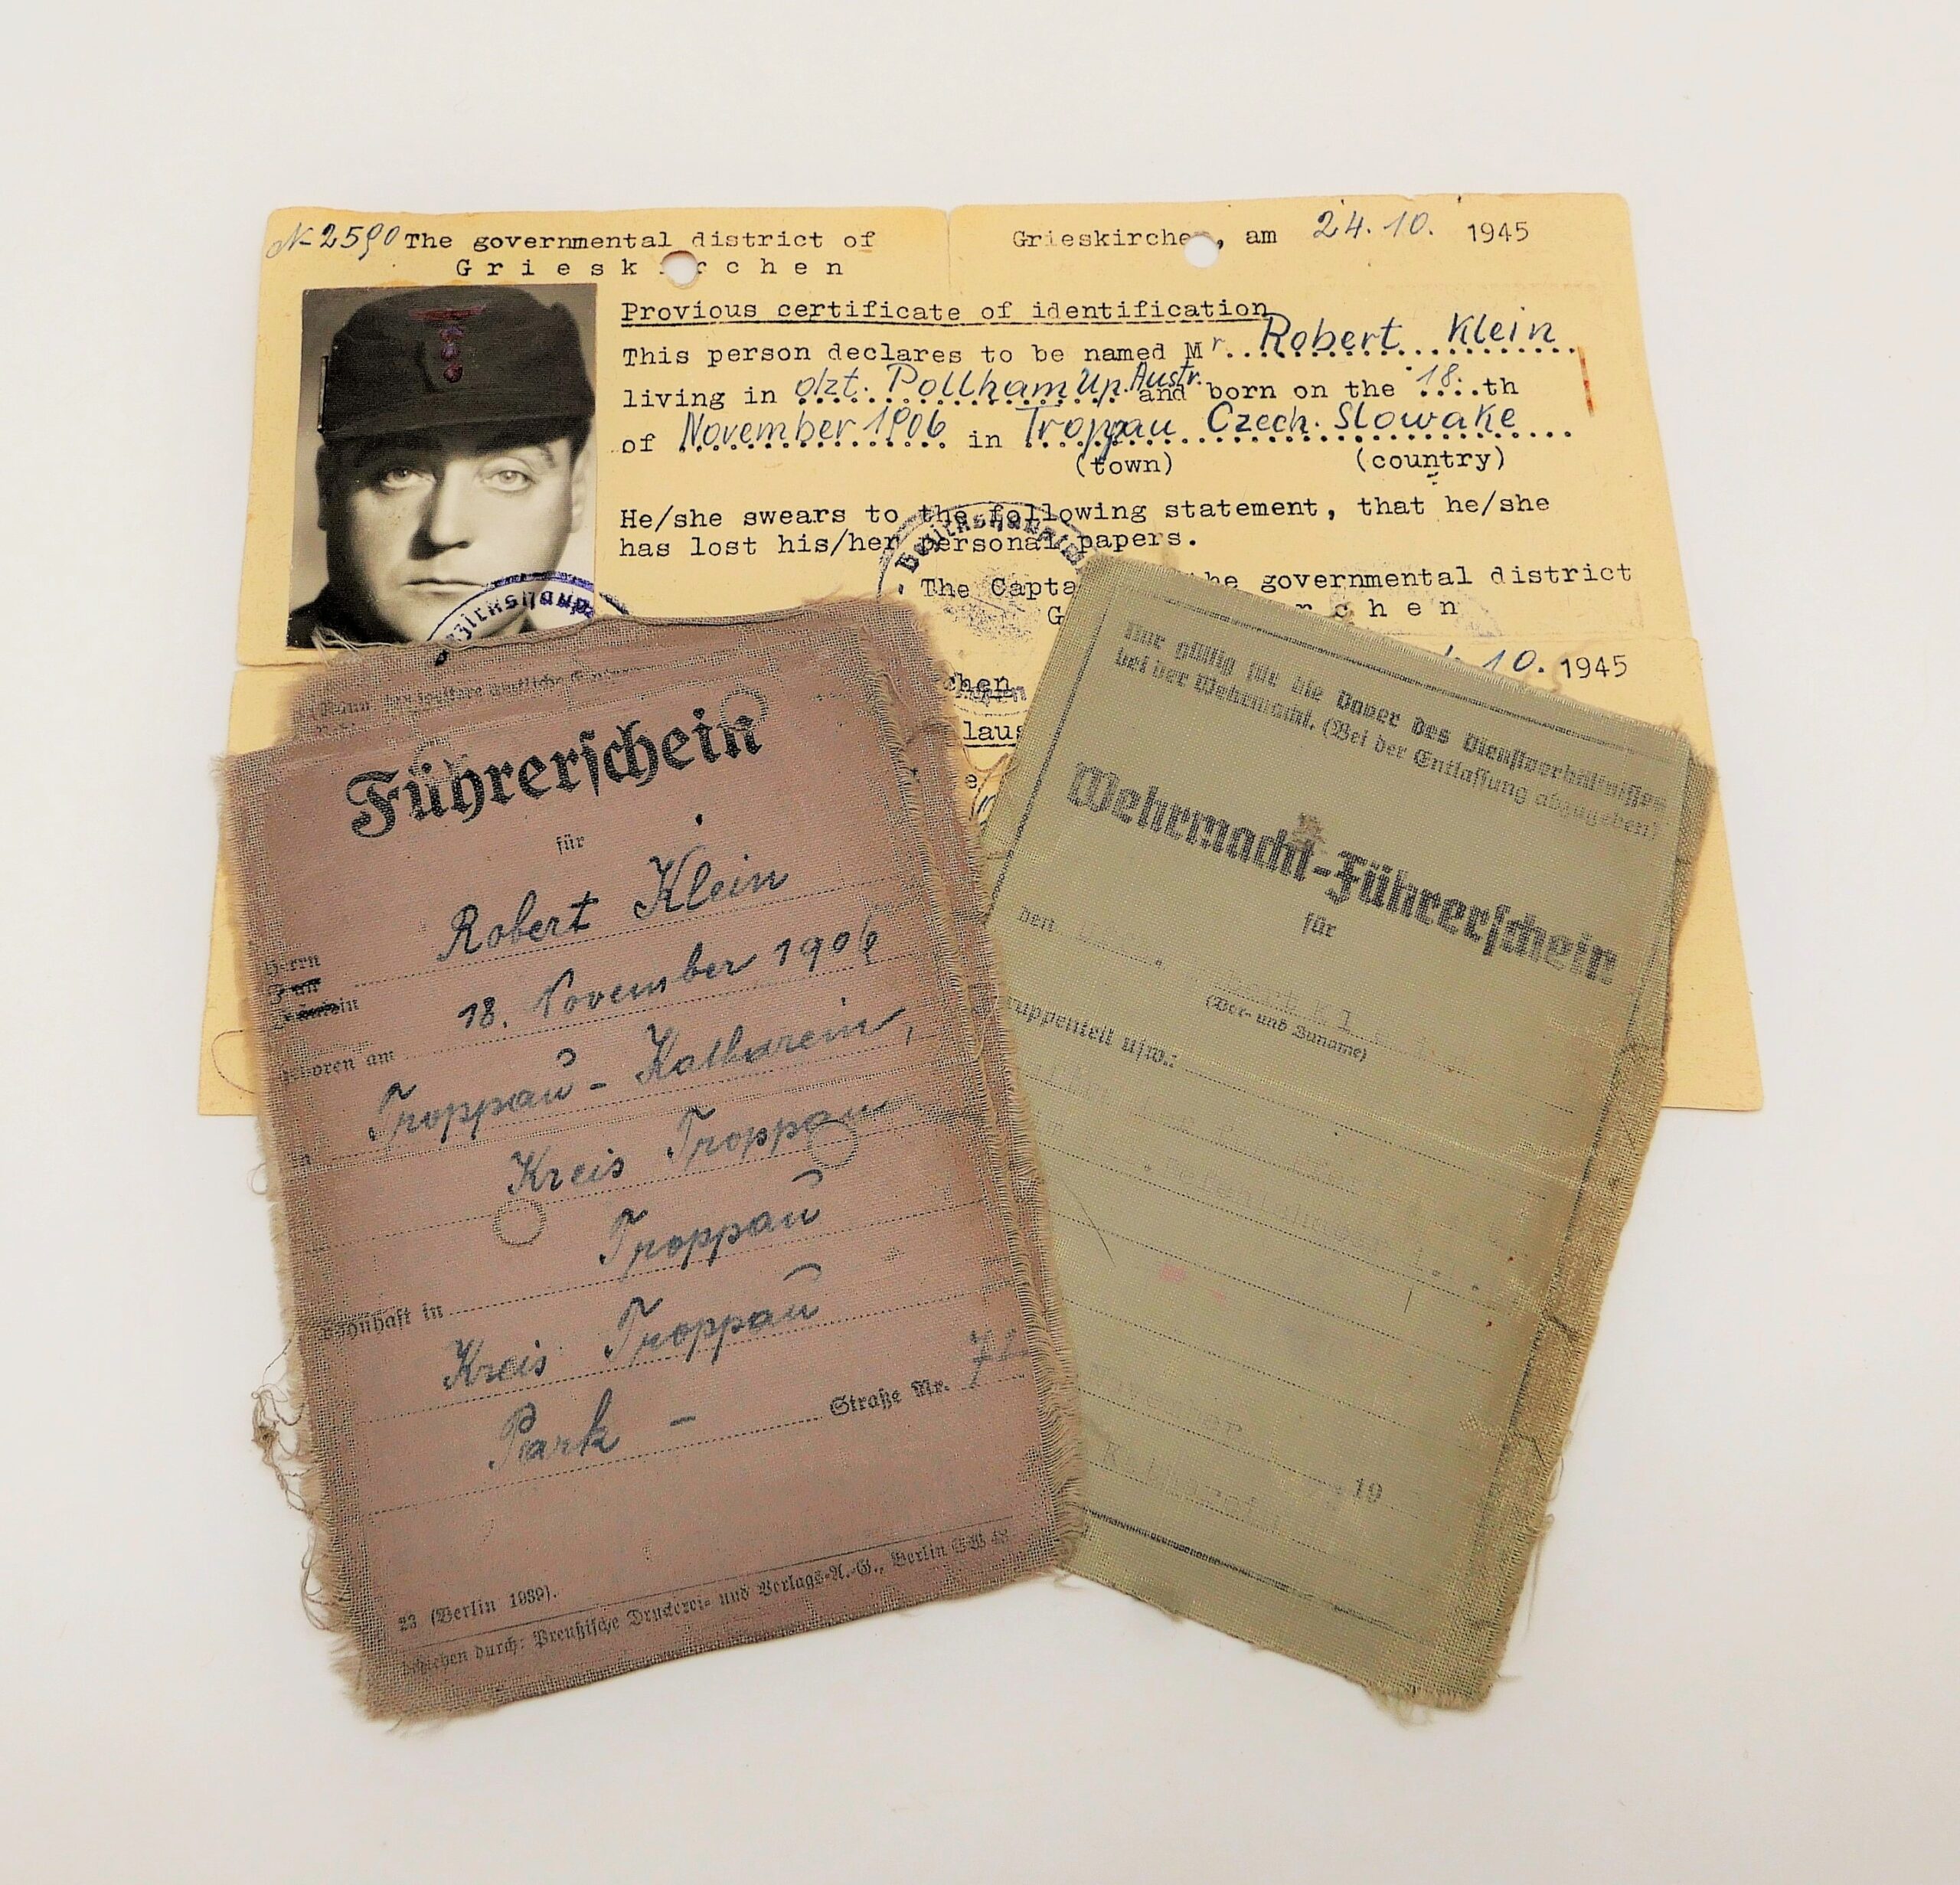 N 2590 The governmental district of
Grieskirchen
Grieskirchen, am 24.10. 1945
Provious certificate of identification
This person declares to be named Mr. Robert Klein
living in dzt. Pollham Up. Austr. and born on the 18. th
of November 1906 in Troppau Czech. Slowake
(town) (country)
He/she swears to the following statement, that he/she
has lost his/her personal papers.
The Capta he governmental district
G rchen
10. 1945
chen
laus
e
Bezirkshaup
zirkshaup
Führerschein
für
Herrn
Robert Klein
Frau
Fräulein
geboren am 18. November 1906
Troppau - Katharein,
Kreis Troppau
wohnhaft in Troppau
Kreis Troppau
Park - Straße Nr.
23 (Berlin 1939).
beziehen durch: Preußische Druckerei- und Verlags-A.-G., Berlin SW 48
Nur gültig für die Dauer des Dienstverhältnisses
bei der Wehrmacht. (Bei der Entlassung abzugeben)
Wehrmacht-Führerschein
für
den
(Vor- und Zuname)
Truppenteil usw.:
19